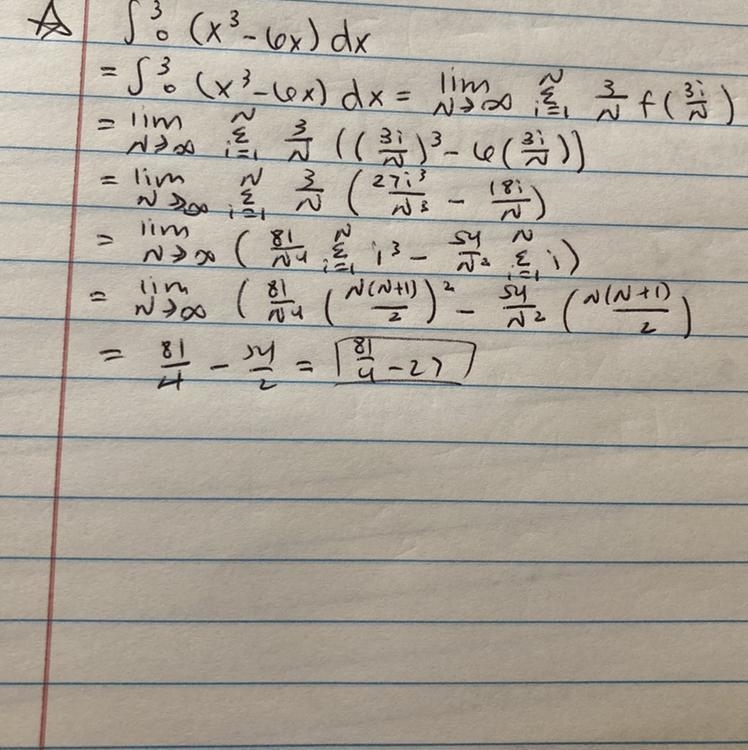 ☆ ∫³₀ (x³-6x) dx
= ∫³₀ (x³-6x) dx = lim N→∞ N Σ i=1 3/N f(3i/N)
= lim N→∞ N Σ i=1 3/N ((3i/N)³ - 6(3i/N))
= lim N→∞ N Σ i=1 3/N (27i³/N³ - 18i/N)
= lim N→∞ (81/N⁴ N Σ i=1 i³ - 54/N² N Σ i=1 i)
= lim N→∞ (81/N⁴ (N(N+1)/2)² - 54/N² (N(N+1)/2)
= 81/4 - 54/2 = 81/4 - 27